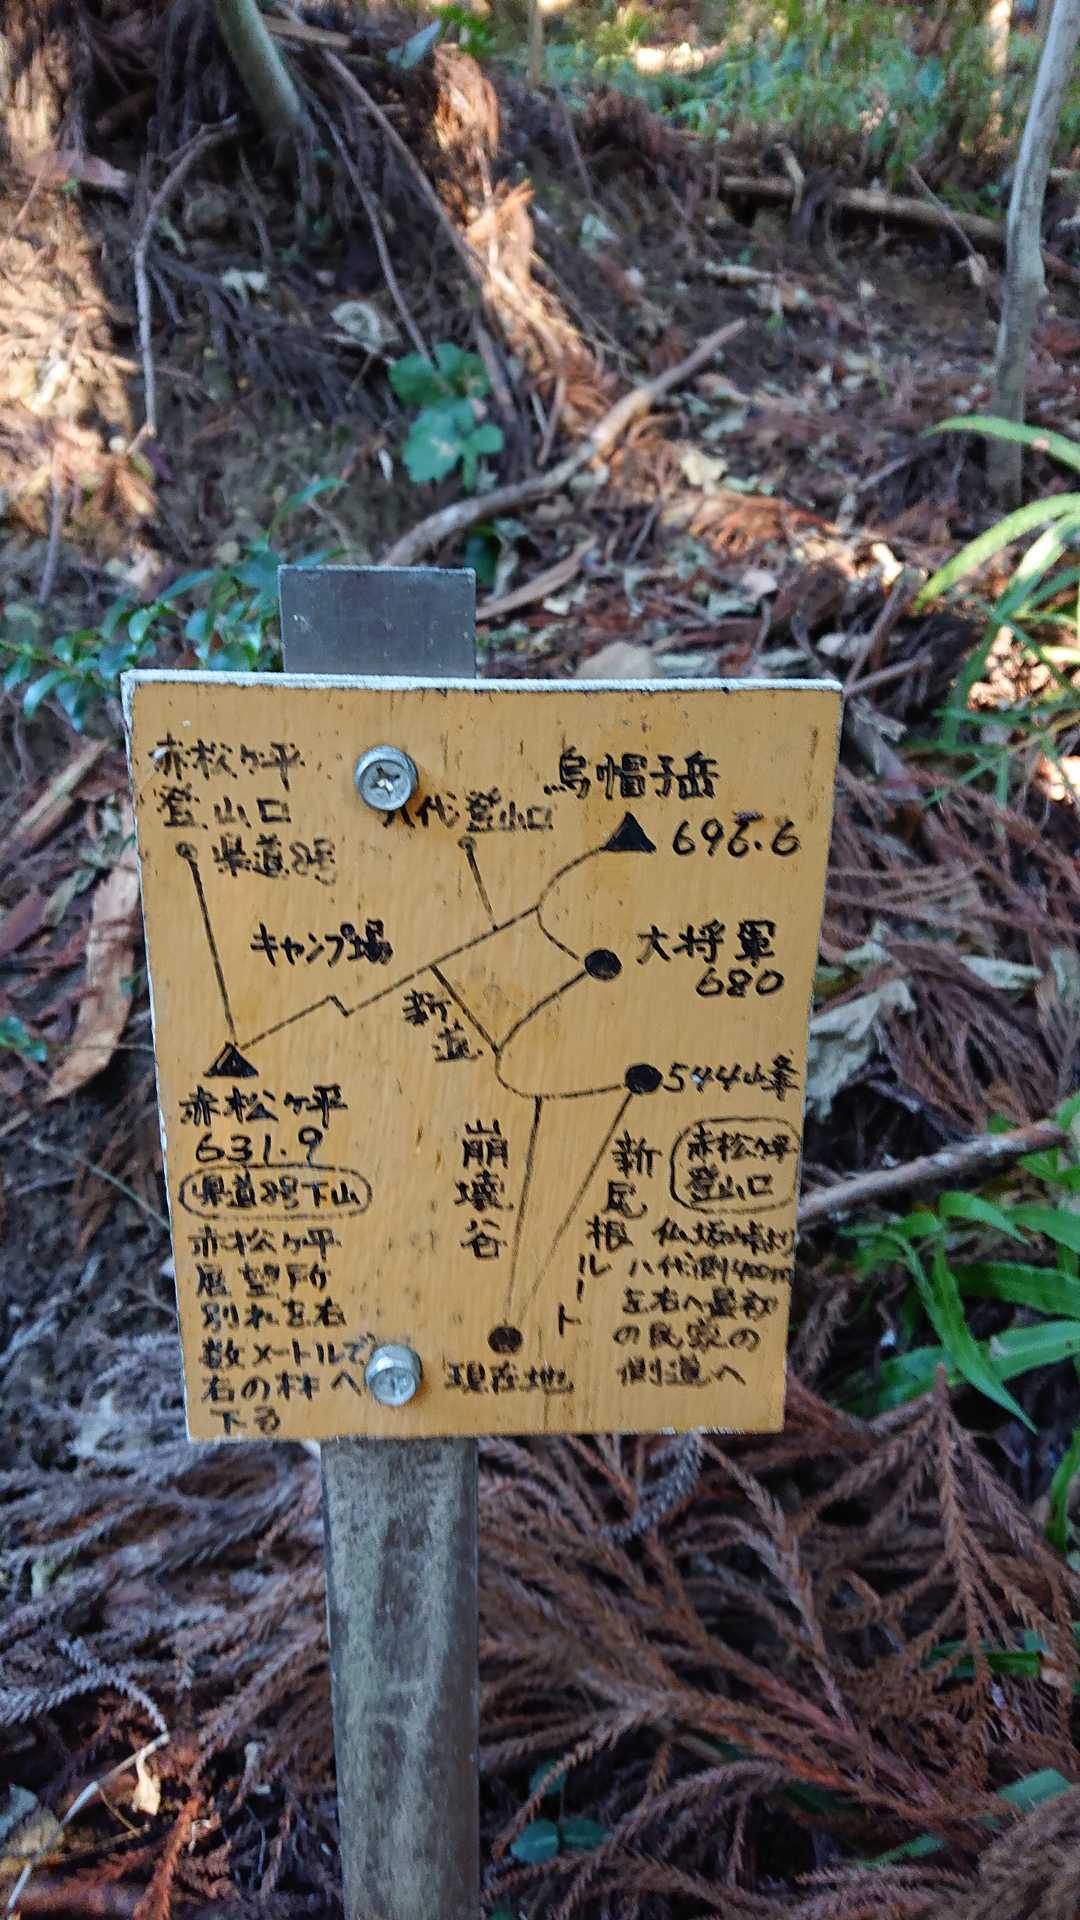 赤松ヶ平
登山口
県道8号
八代登山口
烏帽子岳
696.6
キャンプ場
大将軍
680
新道
544峰
赤松ヶ平
631.9
県道8号下山
赤松ヶ平
展望所
別れ左右
数メートルで
右の林へ
下る
崩壊谷
新尾根ルート
赤松ヶ平
登山口
八代側400m
左右へ最初
の民家の
側道へ
現在地